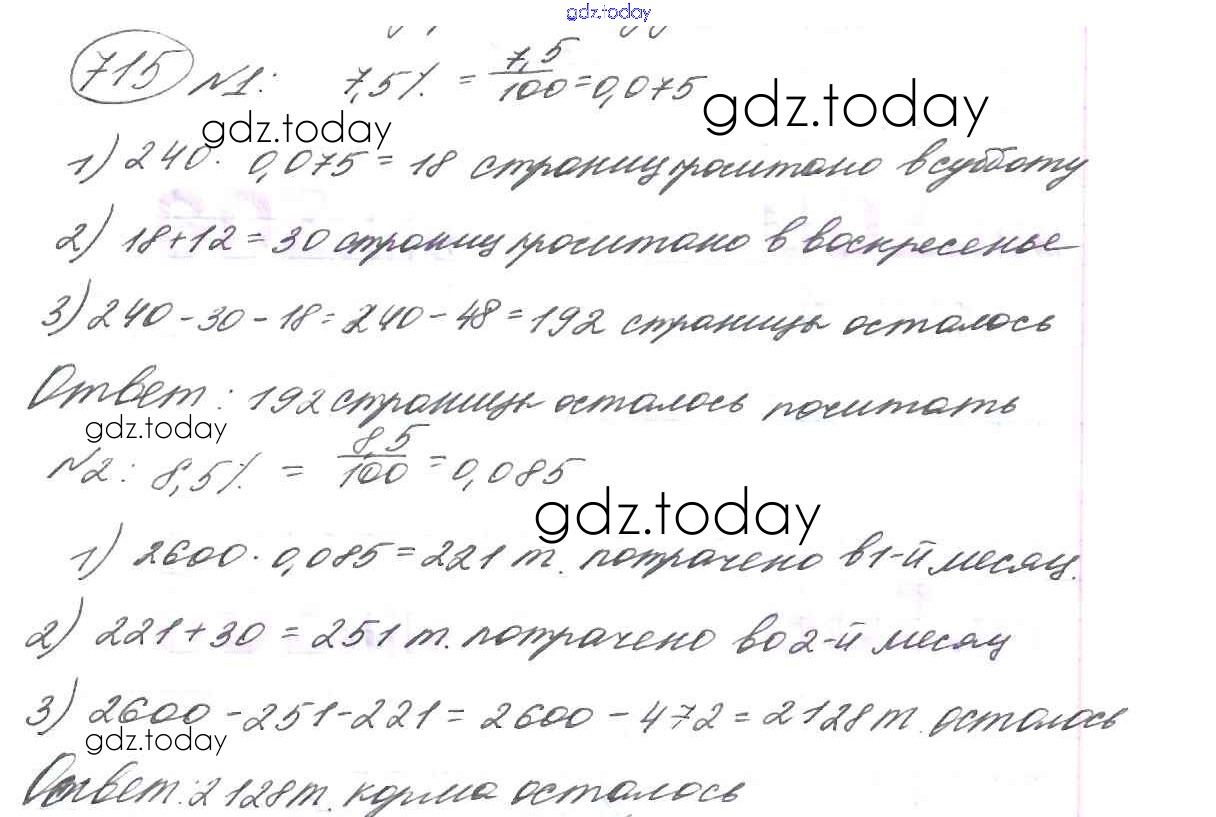 gdz.today
715 №1: 7,5% = 7,5/100 = 0,075
gdz.today
gdz.today
1) 240 · 0,075 = 18 страниц прочитано в субботу
2) 18+12 = 30 страниц прочитано в воскресенье
3) 240 - 30 - 18 = 240 - 48 = 192 страницы осталось
Ответ: 192 страницы осталось почитать
gdz.today
№2: 8,5% = 8,5/100 = 0,085
gdz.today
1) 2600 · 0,085 = 221 т. потрачено в 1-й месяц.
2) 221 + 30 = 251 т. потрачено во 2-й месяц
3) 2600 - 251 - 221 = 2600 - 472 = 2128 т. осталось
gdz.today
Ответ: 2128 т. корма осталось